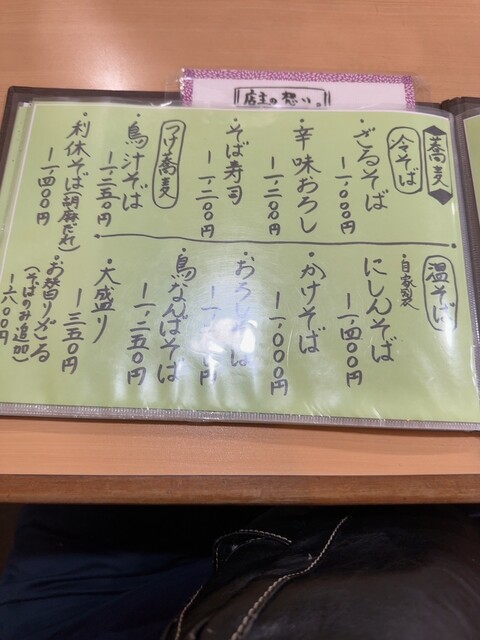 店主の想い。
蕎麦
冷そば
・ざるそば
一、000円
・辛味おろし
一、二00円
・そば寿司
一、二00円
つけ蕎麦
・鳥汁そば
一、二五0円
・利休そば(胡麻だれ)
一、四00円
温そば
・自家製
にしんそば
一、四00円
・かけそば
一、000円
・おろしそば
・鳥なんばそば
一、二五0円
・大盛り
一三五0円
・お替りざる
(そばのみ追加)
一六00円